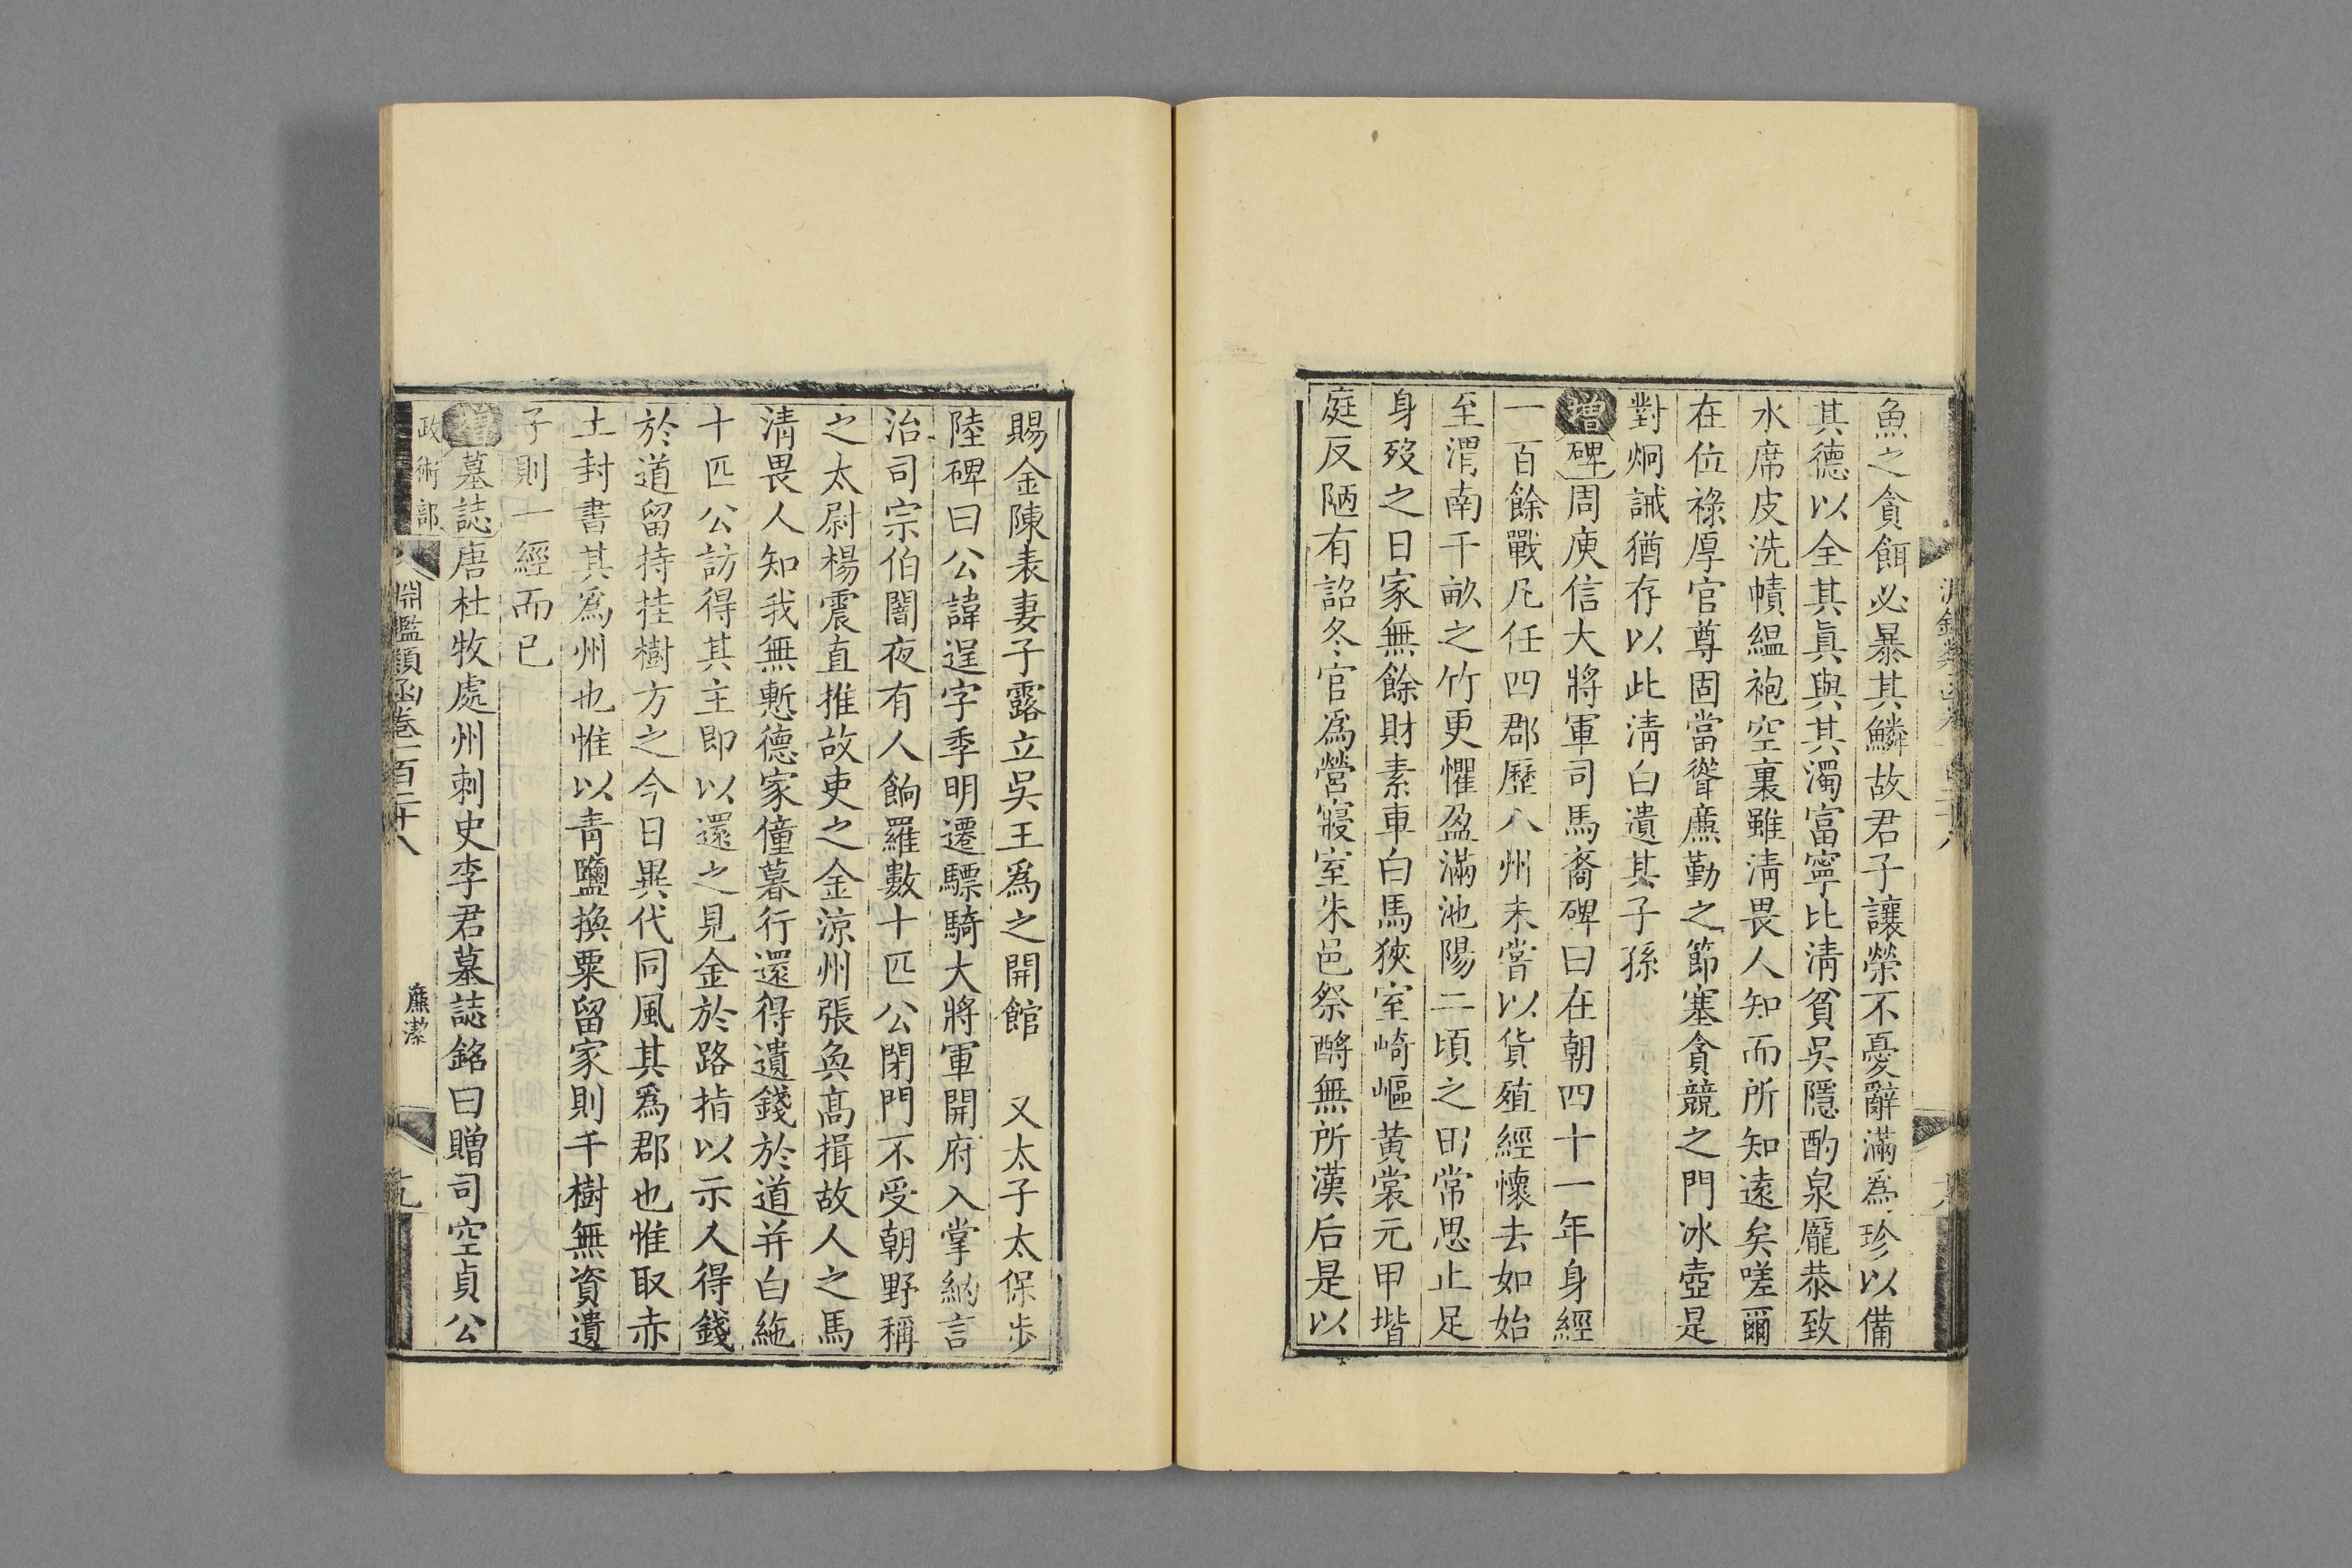 魚之貪餌必暴其鱗故君子讓榮不憂辭滿爲珍以備
其德以全其眞與其濁富寧比淸貧吳隱酌泉龐恭致
水席皮洗幘縕袍空裏雖淸畏人知而所知遠矣嗟爾
在位祿厚官尊固當聳廉勤之節塞貪競之門冰壺是
對炯誡猶存以此淸白遺其子孫
增碑周庾信大將軍司馬裔碑曰在朝四十一年身經
一百餘戰凡任四郡歷八州未嘗以貨殖經懷去如始
至渭南千畝之竹更懼盈滿池陽二頃之田常思止足
身歿之日家無餘財素車白馬狹室崎嶇黃裳元甲堦
庭反陋有詔冬官爲營寢室朱邑祭醊無所漢后是以
賜金陳表妻子露立吳王爲之開館 又太子太保步
陸碑曰公諱逞字季明遷驃騎大將軍開府入掌納言
治司宗伯闇夜有人餉羅數十匹公閉門不受朝野稱
之太尉楊震直推故吏之金涼州張奐高揖故人之馬
淸畏人知我無慙德家僮暮行還得遺錢於道并白絁
十匹公訪得其主卽以還之見金於路指以示人得錢
於道留持挂樹方之今日異代同風其爲郡也惟取赤
土封書其爲州也惟以靑鹽換粟留家則千樹無資遺
子則一經而已
增墓誌唐杜牧處州刺史李君墓誌銘曰贈司空貞公
政術部 淵鑑類函卷一百二十八 廉潔 十九